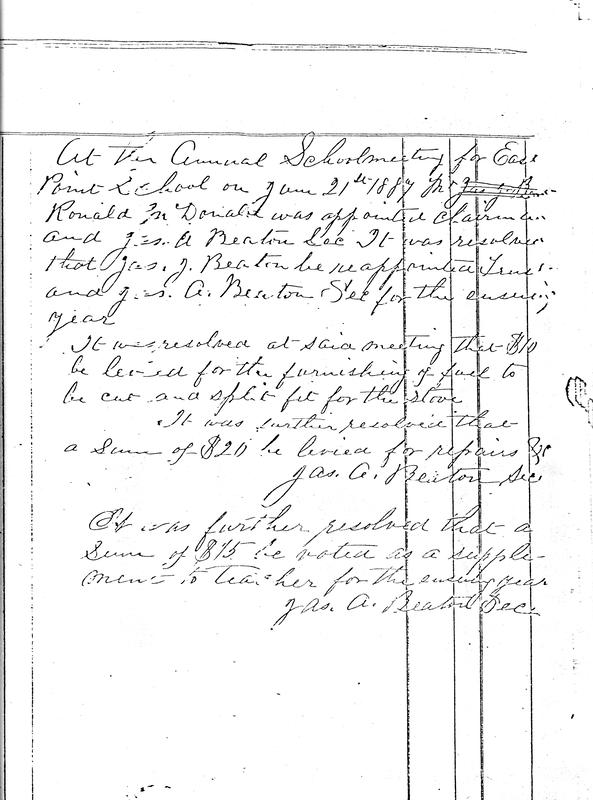 At the Annual Schoolmeeting for East
Point School on June 21st 1887 Mr
Ronald McDonald was appointed Chairman
and Jas. A Beaton Sec It was resolved
that Jas. J. Beaton be reappointed Trus-
and Jas. A. Beaton Sec for the ensuing
year
It was resolved at said meeting that $10
be levied for the furnishing of fuel to
be cut and split fit for the stove
It was further resolved that
a Sum of $20 be levied for repairs &c
Jas. A. Beaton Sec
It was further resolved that a
Sum of $15 be voted as a supple-
ment to teacher for the ensuing year
Jas. A. Beaton Sec.